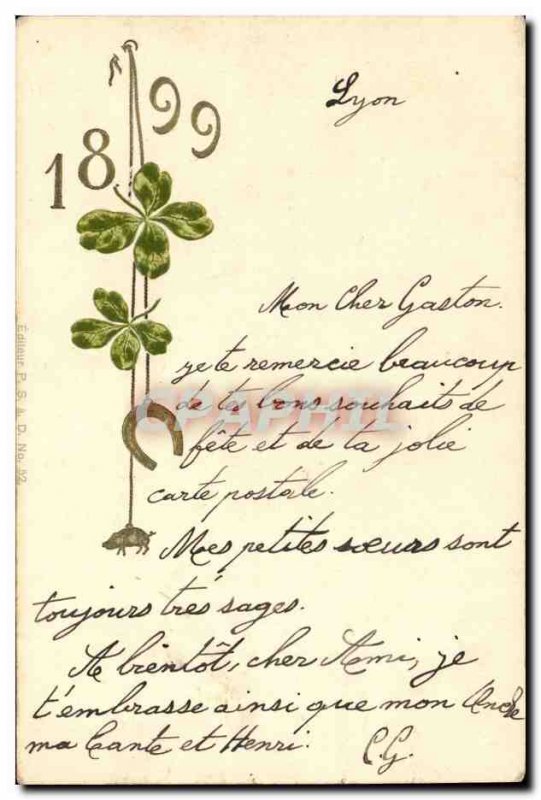 1899
Lyon
Mon Cher Gaston.
je te remercie beaucoup
de tes bons souhaits de
fête et de ta jolie
carte postale.
Mes petites sœurs sont
toujours très sages.
A bientôt, cher Ami, je
t'embrasse ainsi que mon Oncle
ma Tante et Henri.
C.G.
Editeur P. S. à. D. No. 52
CPAPHIL